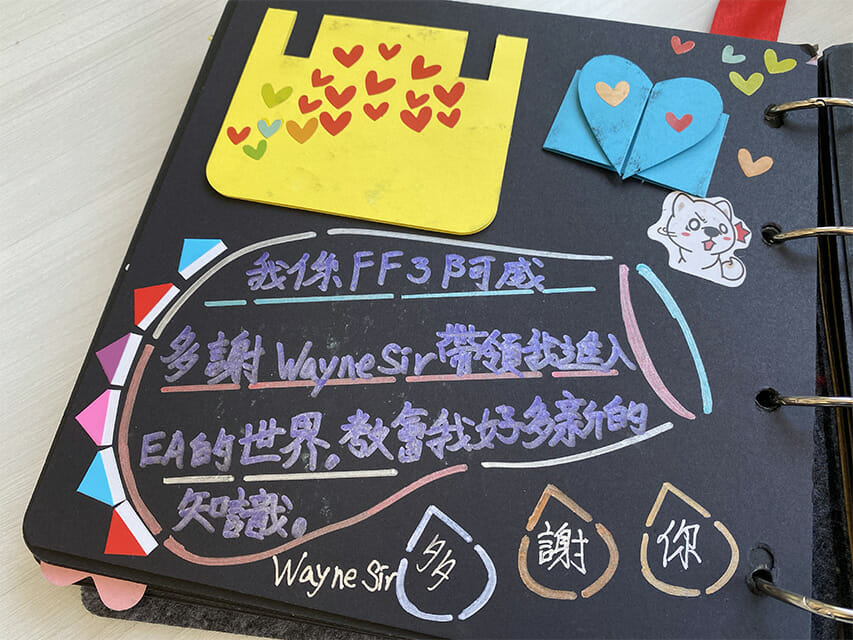 我係FF3阿威
多謝WayneSir帶領我進入
EA的世界。教會我好多新的
知識。
WayneSir 多 謝 你